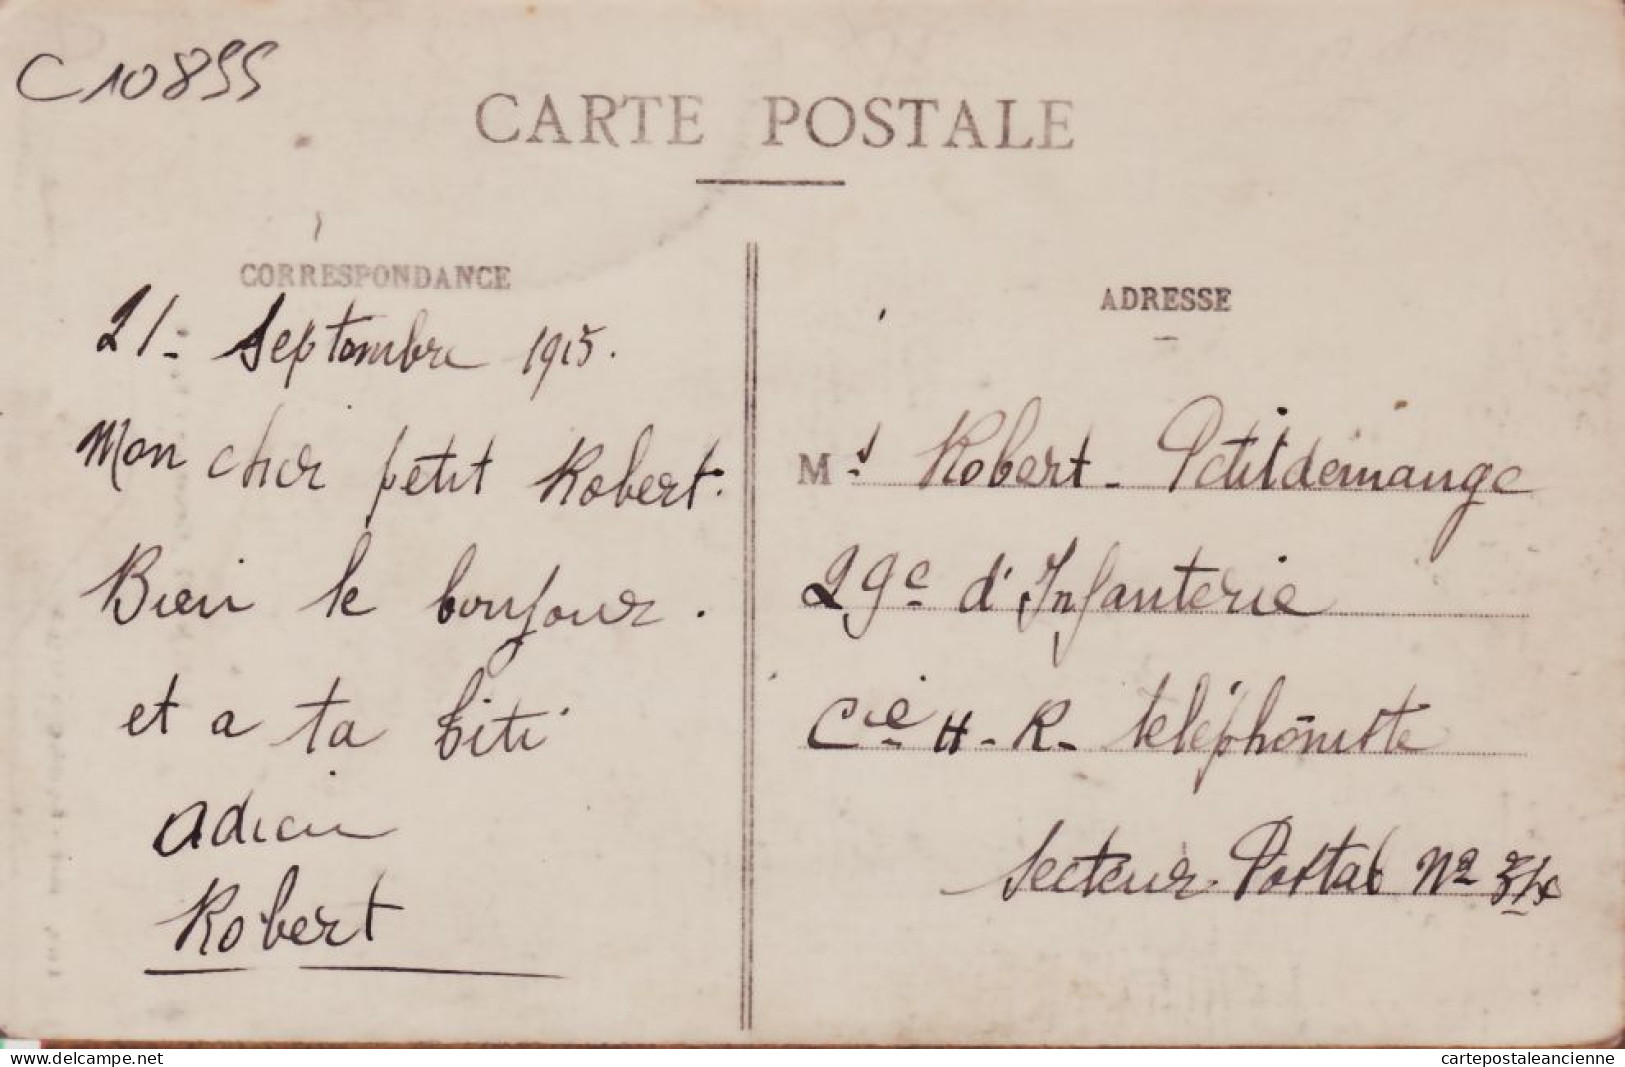 C10855
CARTE POSTALE
CORRESPONDANCE
21- Septembre 1915.
Mon cher petit Robert.
Bien le bonjour.
et a ta titi
adieu
Robert
ADRESSE
Mr Robert - Petitdemange
29e d'Infanterie
Cie H - R - téléphoniste
Secteur - Postal No
cartepostaleancienne